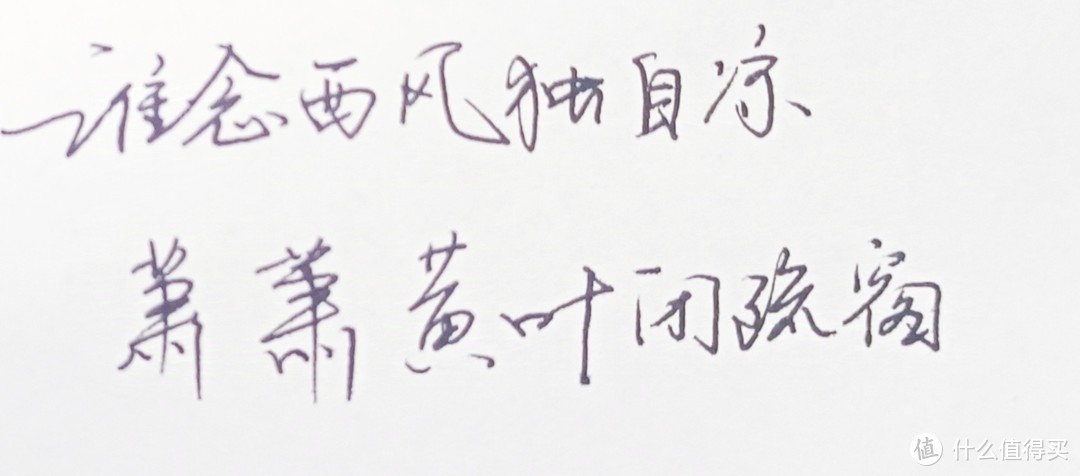 谁念西风独自凉
萧萧黄叶闭疏窗
值 什么值得买